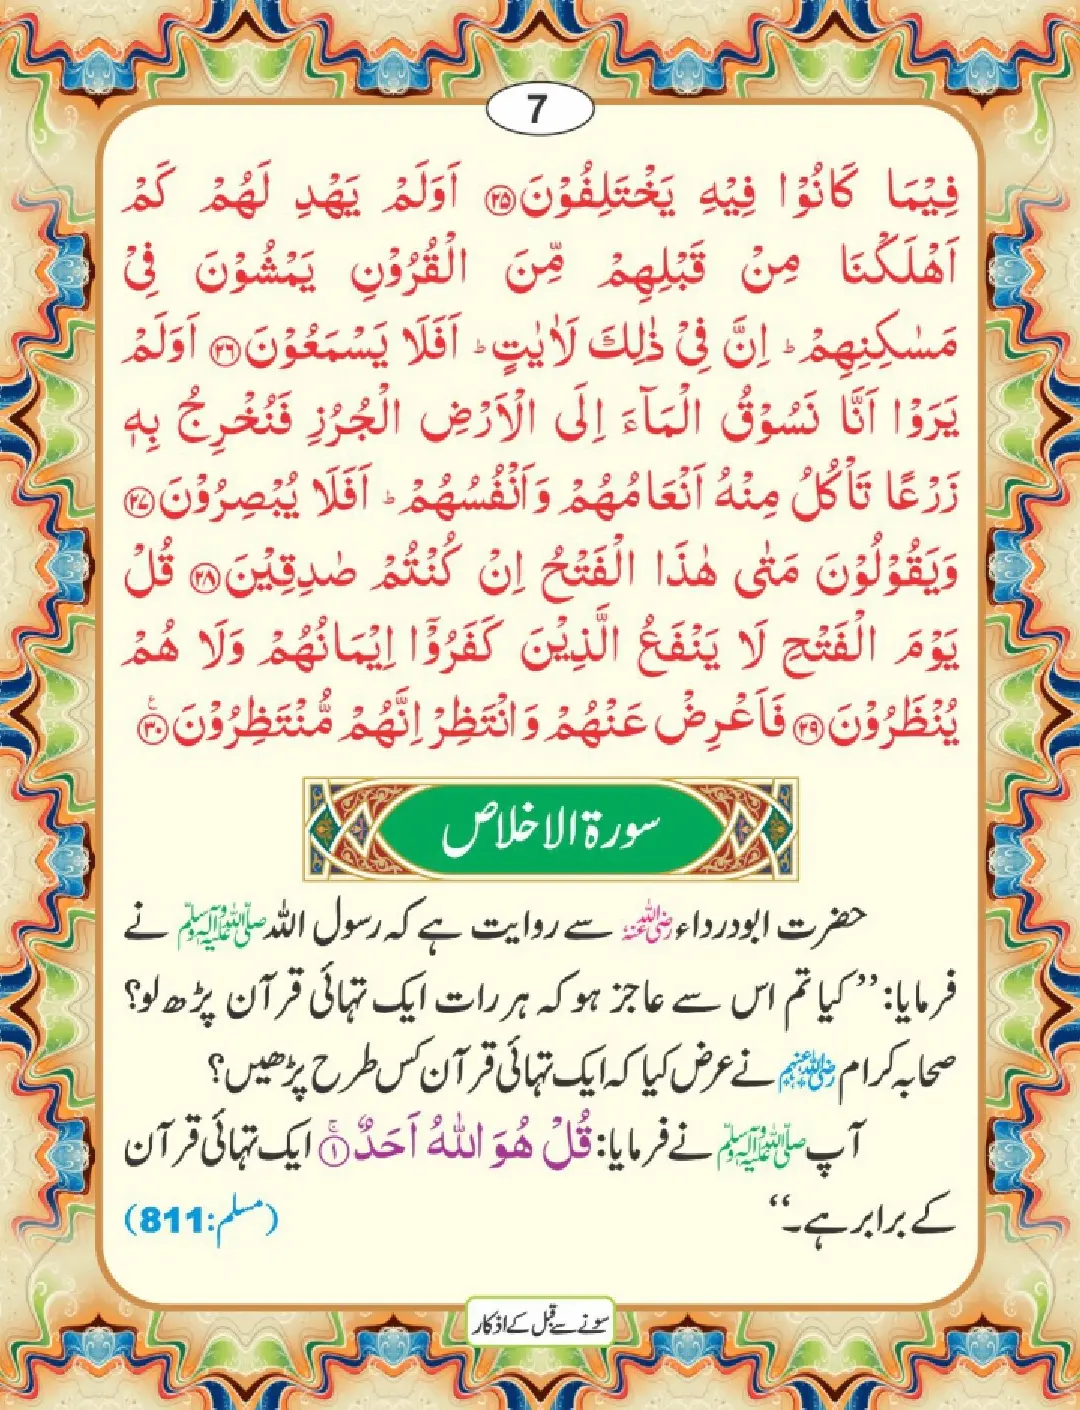 7
فِيْمَا كَانُوْا فِيْهِ يَخْتَلِفُوْنَ ﴿۲۵﴾ اَوَلَمْ يَهْدِ لَهُمْ كَمْ
اَهْلَكْنَا مِنْ قَبْلِهِمْ مِّنَ الْقُرُوْنِ يَمْشُوْنَ فِىْ
مَسٰكِنِهِمْ ؕ اِنَّ فِىْ ذٰلِكَ لَاٰيٰتٍ ؕ اَفَلَا يَسْمَعُوْنَ ﴿۲۶﴾ اَوَلَمْ
يَرَوْا اَنَّا نَسُوْقُ الْمَآءَ اِلَى الْاَرْضِ الْجُرُزِ فَنُخْرِجُ بِهٖ
زَرْعًا تَاْكُلُ مِنْهُ اَنْعَامُهُمْ وَاَنْفُسُهُمْ ؕ اَفَلَا يُبْصِرُوْنَ ﴿۲۷﴾
وَيَقُوْلُوْنَ مَتٰى هٰذَا الْفَتْحُ اِنْ كُنْتُمْ صٰدِقِيْنَ ﴿۲۸﴾ قُلْ
يَوْمَ الْفَتْحِ لَا يَنْفَعُ الَّذِيْنَ كَفَرُوْۤا اِيْمَانُهُمْ وَلَا هُمْ
يُنْظَرُوْنَ ﴿۲۹﴾ فَاَعْرِضْ عَنْهُمْ وَانْتَظِرْ اِنَّهُمْ مُّنْتَظِرُوْنَ ﴿۳۰﴾ ع
سورة الاخلاص
حضرت ابودرداء رضی اللہ عنہ سے روایت ہے کہ رسول اللہ صلی اللہ علیہ وآلہ وسلم نے
فرمایا: ’’کیا تم اس سے عاجز ہو کہ ہر رات ایک تہائی قرآن پڑھ لو؟
صحابہ کرام رضی اللہ عنہم نے عرض کیا کہ ایک تہائی قرآن کس طرح پڑھیں؟
آپ صلی اللہ علیہ وآلہ وسلم نے فرمایا: قُلْ هُوَ اللّٰهُ اَحَدٌ ﴿۱﴾ ایک تہائی قرآن
کے برابر ہے۔‘‘ (مسلم:811)
سونے سے قبل کے اذکار